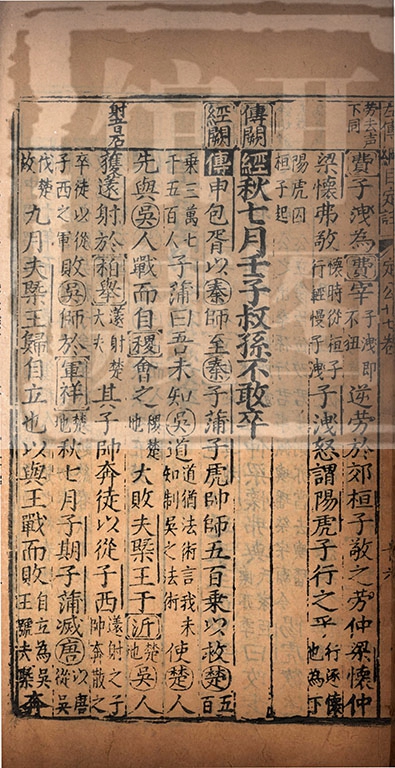 勞去声下同
定公十七卷
費子洩為費宰子洩即不狃逆勞於郊桓子敬之勞仲梁懷仲
梁懷弗敬懷時從桓子行輕慢子洩子洩怒謂陽虎子行之乎行逐懷也為下
陽虎囚桓子起
傳闕
經秋七月壬子叔孫不敢卒
經闕
傳申包胥以秦師至秦子蒲子虎帥師五百乘以救楚五百
乘三萬七千五百人子蒲曰吾未知吳道道猶法術言我未知制吳之法術使楚人
先與吳人戰而自稷會之稷楚地大敗夫槩王于沂楚地吳人
射音石
獲薳射於柏舉薳射楚大夫其子帥奔徒以從子西薳射之子帥奔散之
卒徒以從子西之軍敗吳師於軍祥楚地秋七月子期子蒲滅唐以唐從吳
伐楚故九月夫槩王歸自立也以與王戰而敗自立為吳王號夫槩奔